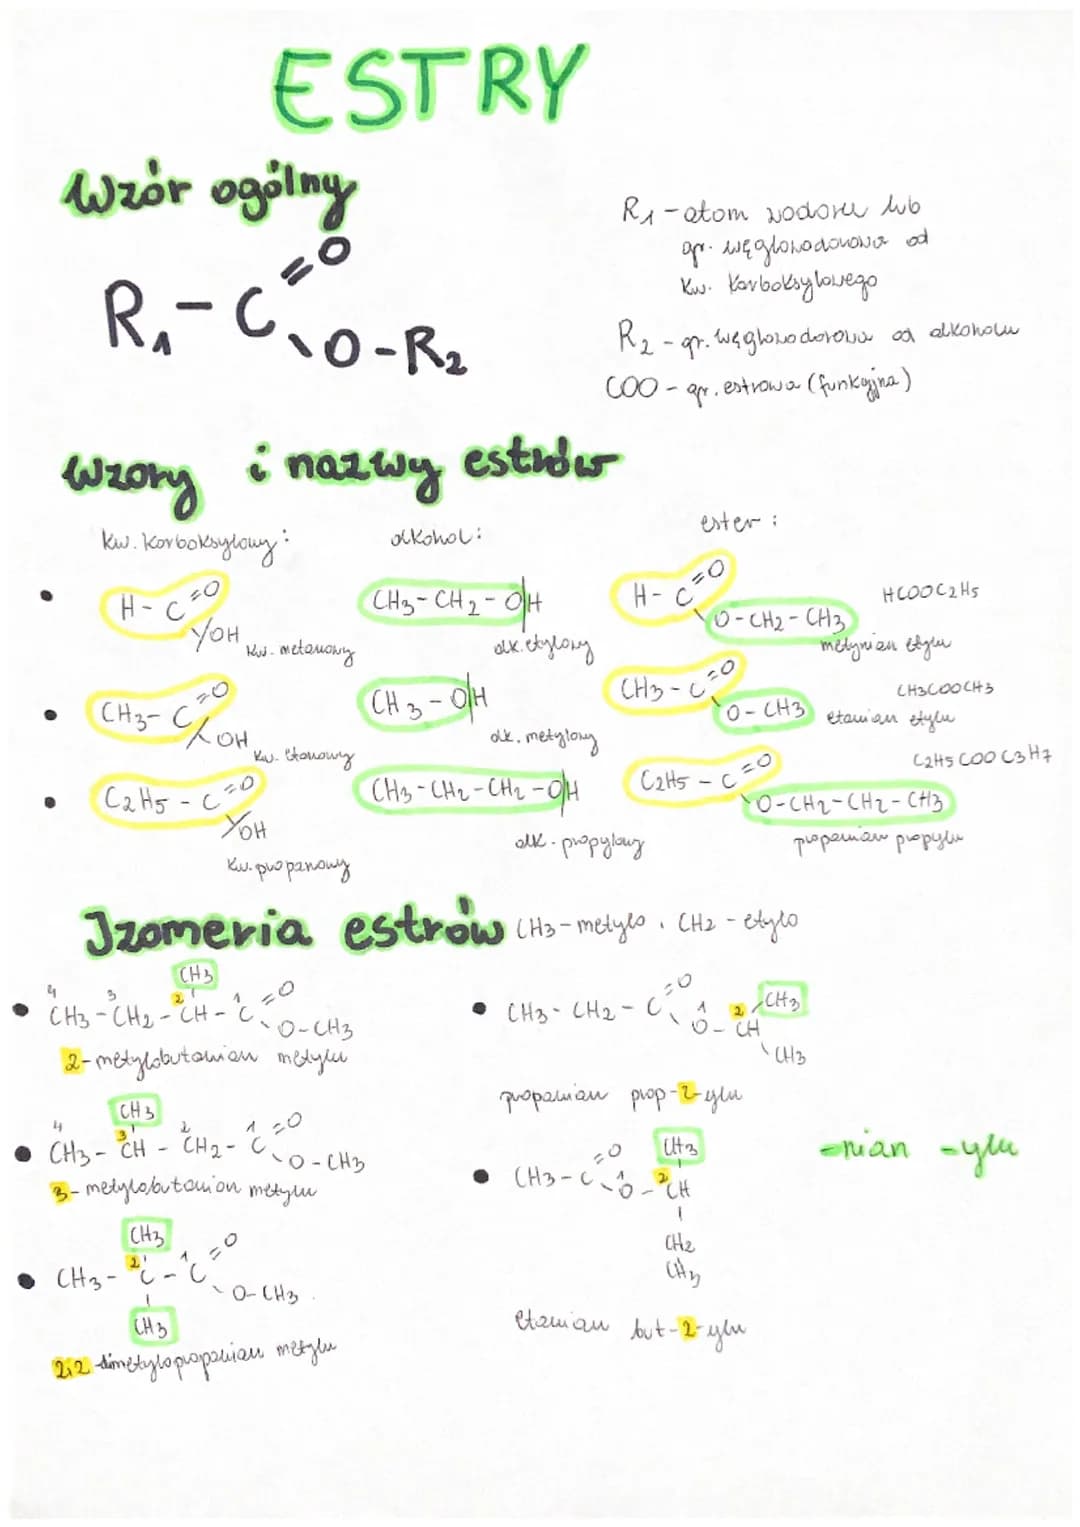 ESTRY
Wzór ogólny
R₁ - C =O
\O - R₂
R₁ - atom wodoru lub
gr. węglowodorowa od
kw. karboksylowego
R₂ - gr. węglowodorowa od alkoholu
COO - gr. estrowa (funkcyjna)
wzory i nazwy estrów
kw. karboksylowy: alkohol: ester:
• H - C =O \OH kw. metanowy
CH3 - CH2 - O|H alk. etylowy
H - C =O \O - CH2 - CH3 HCOOC2H5
metynian etylu
• CH3 - C =O \OH kw. etanowy
CH3 - O|H alk. metylowy
CH3 - C =O \O - CH3 CH3COOCH3
etanian etylu
• C2H5 - C =O \OH kw. propanowy
CH3 - CH2 - CH2 - O|H alk. propylowy
C2H5 - C =O \O - CH2 - CH2 - CH3 C2H5COOC3H7
propanian propylu
Izomeria estrów CH3 - metylo, CH2 - etylo
CH3
4 3 2 1
• CH3 - CH2 - CH - C =O \O - CH3
2-metylobutanian metylu
CH3
4 3 2 1
• CH3 - CH - CH2 - C =O \O - CH3
3-metylobutanian metylu
CH3
2 1
• CH3 - C - C =O \O - CH3
CH3
2,2-dimetylopropanian metylu
• CH3 - CH2 - C =O \O - CH / CH3
1 2
\ CH3
propanian prop-2-ylu
CH3
1 2
• CH3 - C =O \O - CH
CH2
CH3
etanian but-2-ylu
-nian -ylu